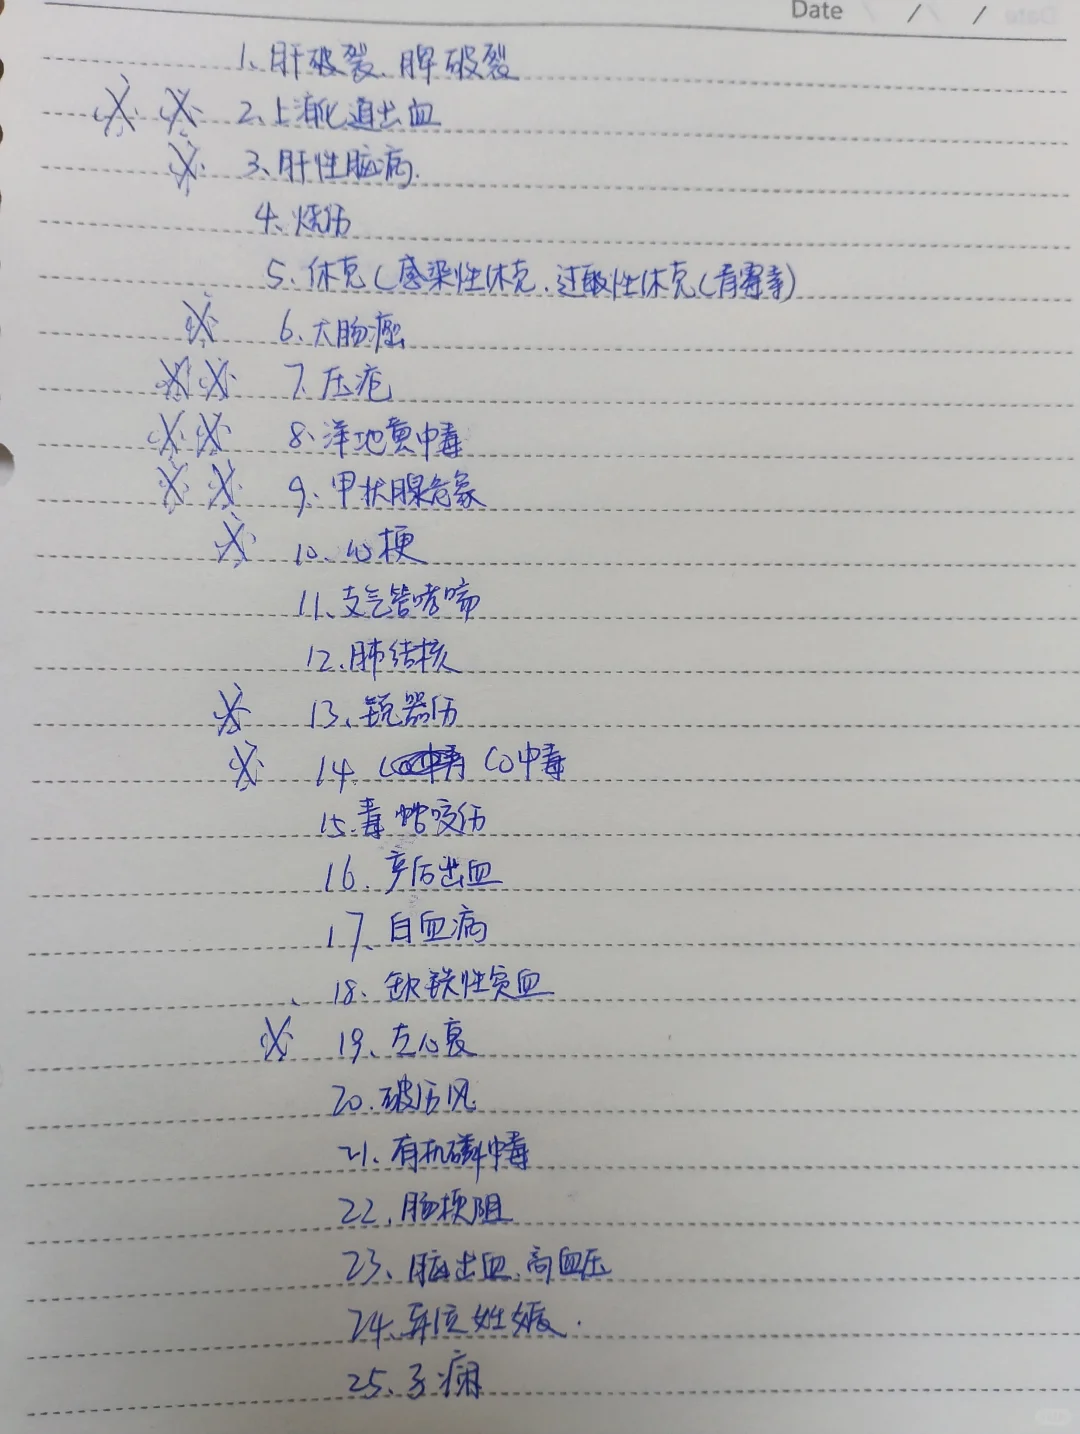 Date / /
1、肝破裂、脾破裂
※ ※ 2、上消化道出血
※ 3、肝性脑病.
4、烧伤
5、休克(感染性休克、过敏性休克(青霉素)
※ 6、大肠癌
※※ 7、压疮
※※ 8、洋地黄中毒
※ ※ 9、甲状腺危象
※ 10、心梗
11、支气管哮喘
12、肺结核
※ 13、锐器伤
※ 14、CO中毒
15、毒蛇咬伤
16、产后出血
17、白血病
18、缺铁性贫血
※ 19、左心衰
20、破伤风
21、有机磷中毒
22、肠梗阻
23、脑出血、高血压
24、异位妊娠.
25、子痫